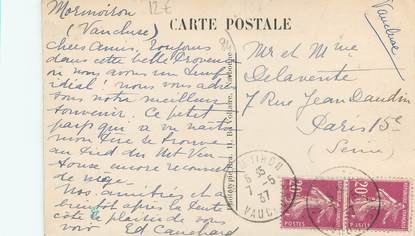 Mormoiron
12€
(Vaucluse)
Chers Amis. Toujours
dans cette belle Provence
où nous avons un temps
idéal. nous vous adres
vous notre meilleur
souvenir. Ce petit
pays qui a vu naître
mon Père se trouve
au pied du Mt Ven-
toux encore recouvert
de neige.
Nos amitiés et à
bientôt après la Pente
côte le plaisir de vous
voir Ed
CARTE POSTALE
84
Vaucluse
Mr et Mme
Delavente
7 Rue Jean Daudin
Paris 15e
(Seine)
7-5
37
VAUCLUSE
20c
POSTES
20c
POSTES